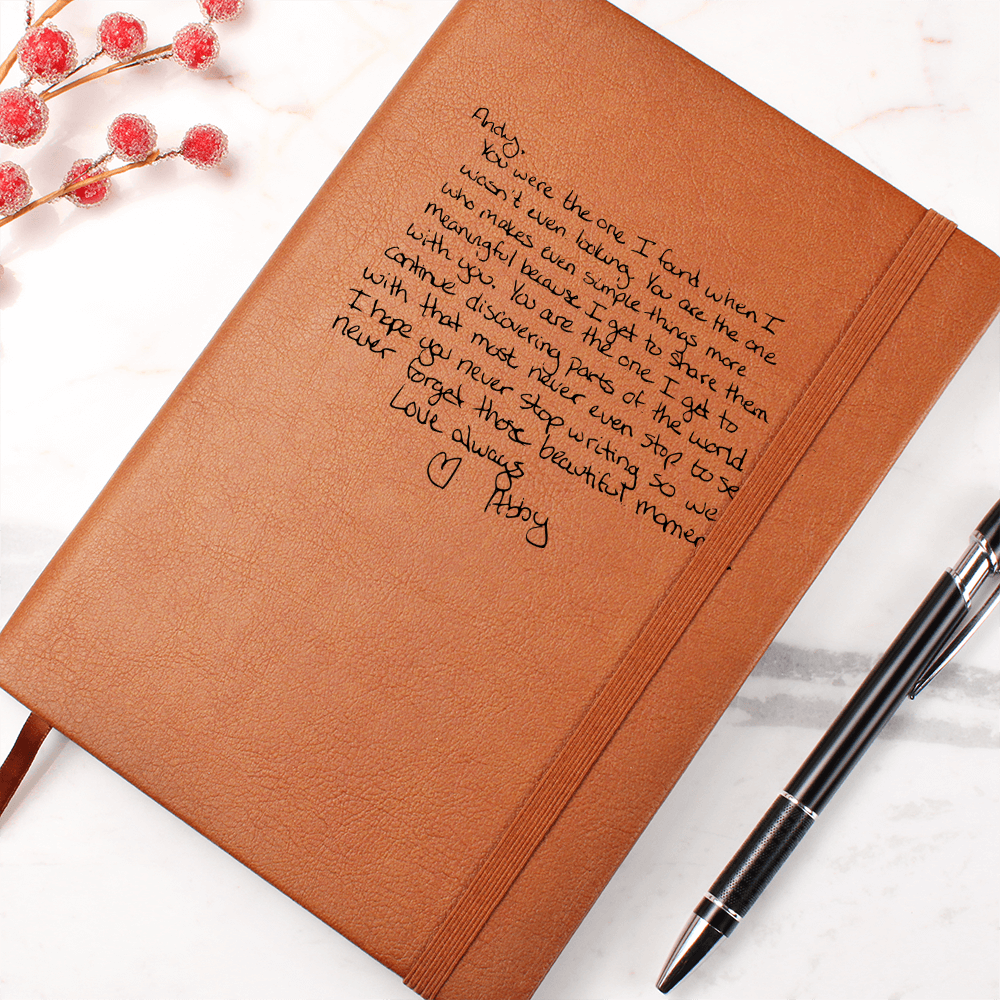 Andy,
You were the one I found when I
wasn't even looking. You are the one
who makes even simple things more
meaningful because I get to share them
with you. You are the one I get to
continue discovering parts of the world
with that most never even stop to se
I hope you never stop writing so we
never forget those beautiful momen
Love always
♡ Abby